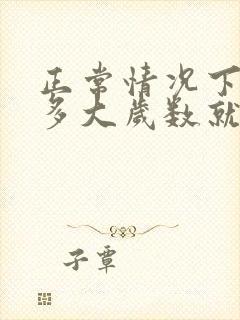 正常情况下
多大岁数就
子蕈